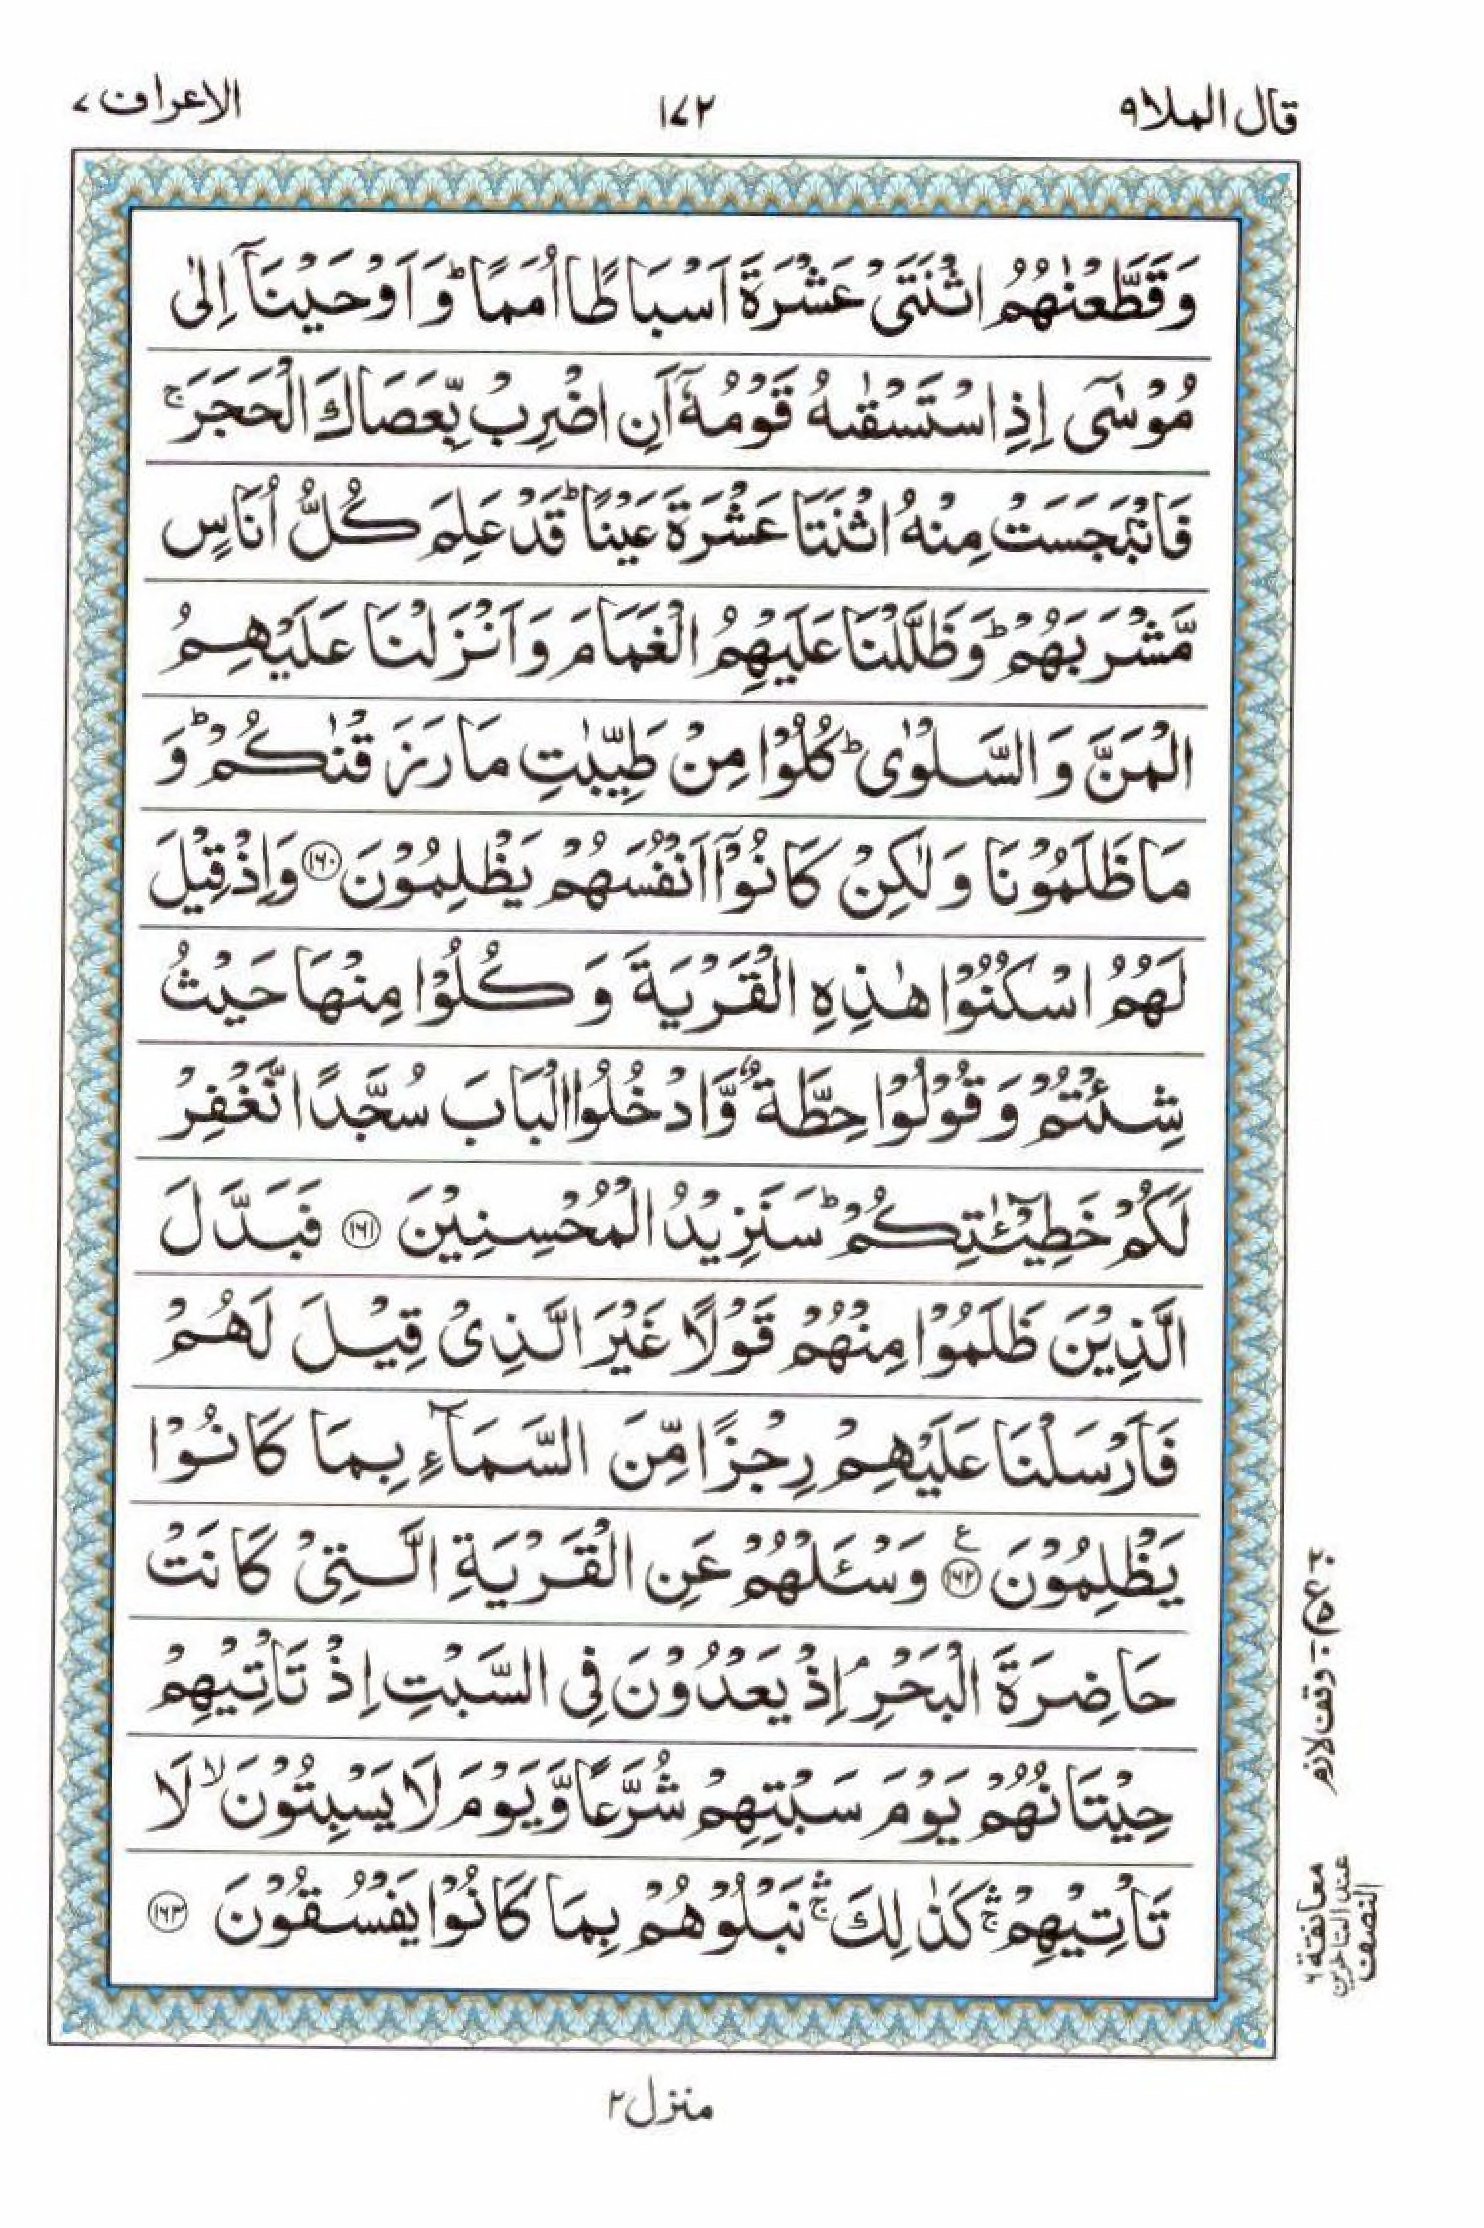 قال الملا ٩
١٧٢
الاعراف ٧
وَقَطَّعْنٰهُمُ اثْنَتَیْ عَشْرَةَ اَسْبَاطًا اُمَمًا ؕ وَاَوْحَیْنَاۤ اِلٰی
مُوْسٰۤی اِذِ اسْتَسْقٰىهُ قَوْمُهٗۤ اَنِ اضْرِبْ بِّعَصَاكَ الْحَجَرَ ۚ
فَانْۢبَجَسَتْ مِنْهُ اثْنَتَا عَشْرَةَ عَیْنًا ؕ قَدْ عَلِمَ كُلُّ اُنَاسٍ
مَّشْرَبَهُمْ ؕ وَظَلَّلْنَا عَلَیْهِمُ الْغَمَامَ وَاَنْزَلْنَا عَلَیْهِمُ
الْمَنَّ وَالسَّلْوٰی ؕ كُلُوْا مِنْ طَیِّبٰتِ مَا رَزَقْنٰكُمْ ؕ وَ
مَا ظَلَمُوْنَا وَلٰكِنْ كَانُوْۤا اَنْفُسَهُمْ یَظْلِمُوْنَ ﴿١٦٠﴾ وَاِذْ قِیْلَ
لَهُمُ اسْكُنُوْا هٰذِهِ الْقَرْیَةَ وَكُلُوْا مِنْهَا حَیْثُ
شِئْتُمْ وَقُوْلُوْا حِطَّةٌ وَّادْخُلُوا الْبَابَ سُجَّدًا نَّغْفِرْ
لَكُمْ خَطِیْٓـٰٔتِكُمْ ؕ سَنَزِیْدُ الْمُحْسِنِیْنَ ﴿١٦١﴾ فَبَدَّلَ
الَّذِیْنَ ظَلَمُوْا مِنْهُمْ قَوْلًا غَیْرَ الَّذِیْ قِیْلَ لَهُمْ
فَاَرْسَلْنَا عَلَیْهِمْ رِجْزًا مِّنَ السَّمَآءِ بِمَا كَانُوْا
یَظْلِمُوْنَ ﴿١٦٢﴾ ع وَسْـَٔلْهُمْ عَنِ الْقَرْیَةِ الَّتِیْ كَانَتْ
حَاضِرَةَ الْبَحْرِ ۘ اِذْ یَعْدُوْنَ فِی السَّبْتِ اِذْ تَاْتِیْهِمْ
حِیْتَانُهُمْ یَوْمَ سَبْتِهِمْ شُرَّعًا وَّیَوْمَ لَا یَسْبِتُوْنَ ۙ لَا
تَاْتِیْهِمْ ۛۚ كَذٰلِكَ ۛۚ نَبْلُوْهُمْ بِمَا كَانُوْا یَفْسُقُوْنَ ﴿١٦٣﴾
وقف لازم
معانقة ٦
عند المتاخرين
النصف
منزل ٢